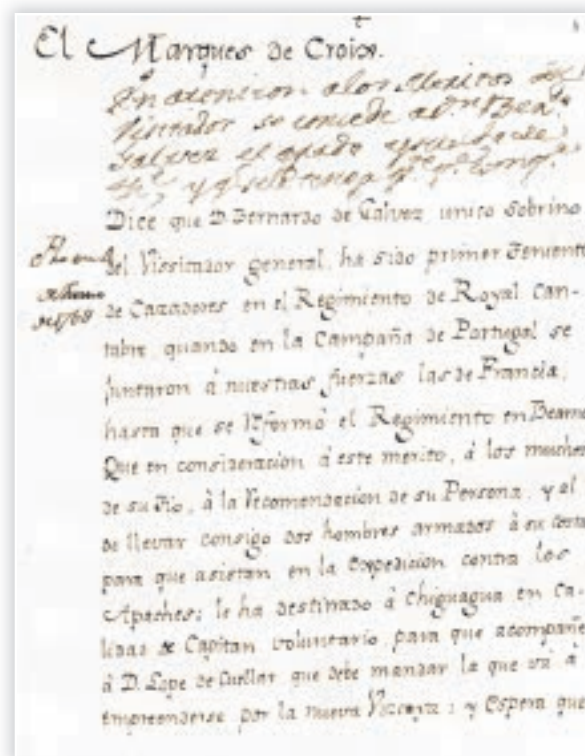 El Marques de Croix.
En atencion a los Meritos del
Visitador se concede a Dn Ber.do
Galvez el grado y sueldo de
Dice que D. Bernardo de Galvez unico sobrino
del Vissitador general, ha sido primer Teniente
de Cazadores en el Regimiento de Royal Can-
tabre quando en la Campaña de Portugal se
juntaron á nuestras fuerzas las de Francia,
hasta que se Reformó el Regimiento en Bearne
Que en consideracion á este merito, á los muchos
de su Tio, á la recomendacion de su Persona, y al
de llevar consigo dos hombres armados á su costa
para que asistan en la Expedicion contra los
Apaches; le ha destinado á Chiguagua en Ca-
lidad de Capitan voluntario para que acompañe
á D. Lope de Cuellar que debe mandar la que vá á
Empreenderse por la nueva Vizcaya: y Espera que